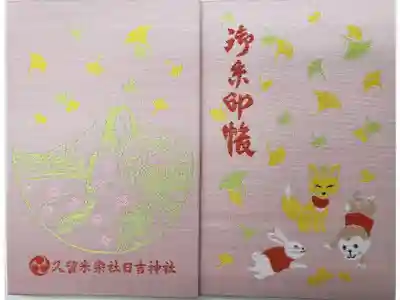 御朱印帳
久留米宗社日吉神社